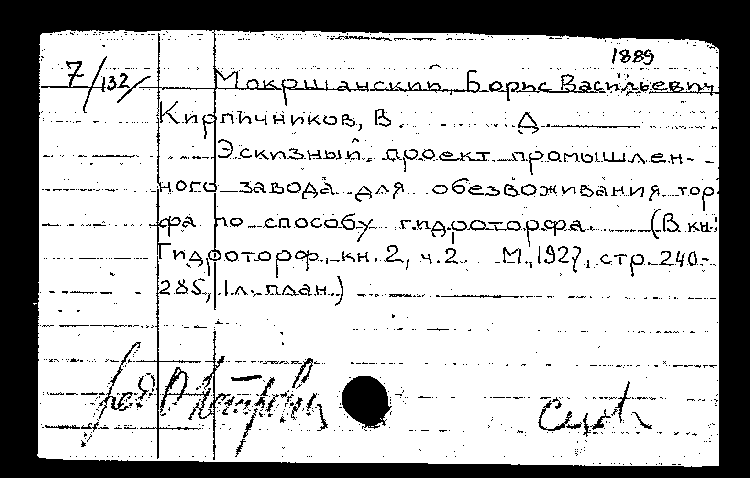 1889
7/132/ Мокршанский, Борис Васильевич
Кирпичников, В. Д.
Эскизный проект промышлен-
ного завода для обезвоживания тор
фа по способу гидроторфа. (В кн:
Гидроторф, кн. 2, ч. 2. М., 1927, стр. 240-
285, 1 л. план.)